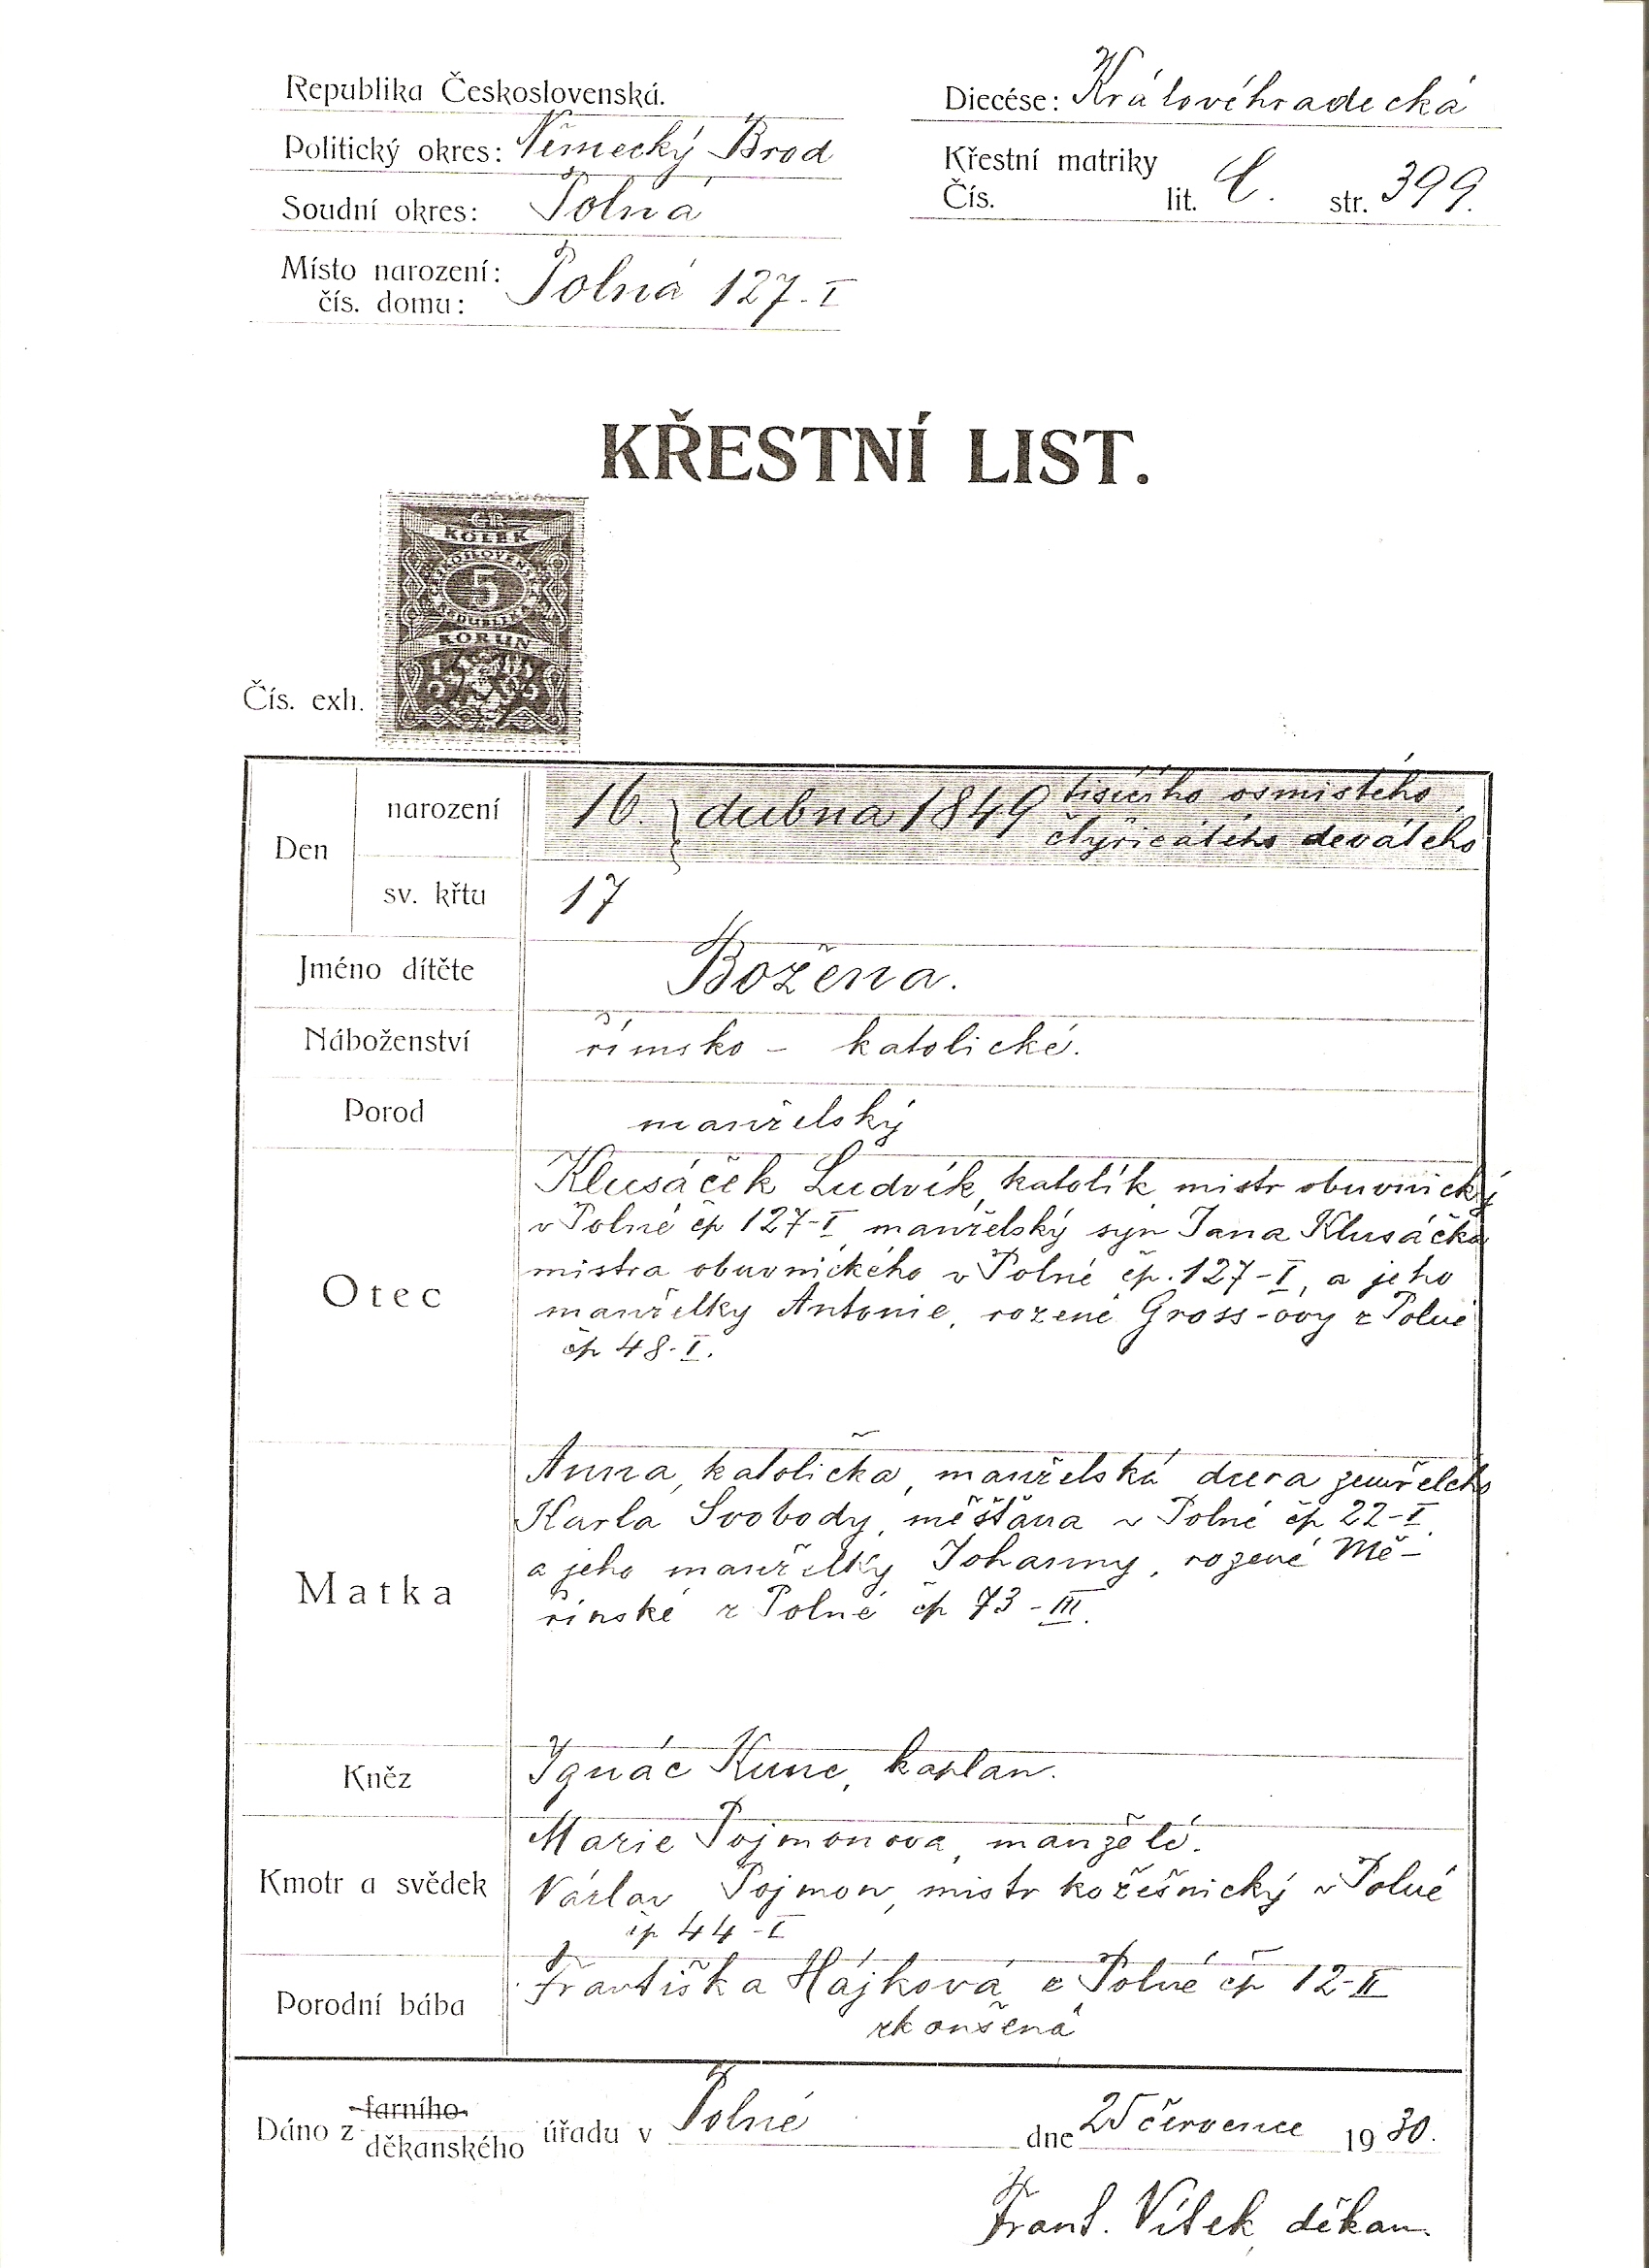 Republika Československá.
Politický okres: Německý Brod
Soudní okres: Polná
Místo narození:
čís. domu: Polná 127-I
Diecése: Královéhradecká
Křestní matriky
Čís. lit. C. str. 399.
KŘESTNÍ LIST.
KOLEK
5
KORUN
Čís. exh.
Den
narození 16. dubna 1849 tisícího osmistého
čtyřicátého devátého
sv. křtu 17
Jméno dítěte Božena.
Náboženství římsko - katolické.
Porod manželský
Otec
Klusáček Ludvík, katolík mistr obuvnický
v Polné čp 127-I, manželský syn Jana Klusáčka
mistra obuvnického v Polné čp. 127-I, a jeho
manželky Antonie, rozené Gross-ovy z Polné
čp 48-I.
Matka
Anna, katolička, manželská dcera zemřelého
Karla Svobody, měšťana v Polné čp 22-I,
a jeho manželky Johanny, rozené Mě-
řínské z Polné čp 73-III.
Kněz Ignác Kunc, kaplan.
Kmotr a svědek
Marie Pojmonova, manželé.
Václav Pojmon, mistr kožešnický v Polné
čp 44-I
Porodní bába
Františka Hájková z Polné čp 12-II
zkoušená
Dáno z farního
děkanského úřadu v Polné dne 25 července 1930.
Frant. Vítek, děkan.